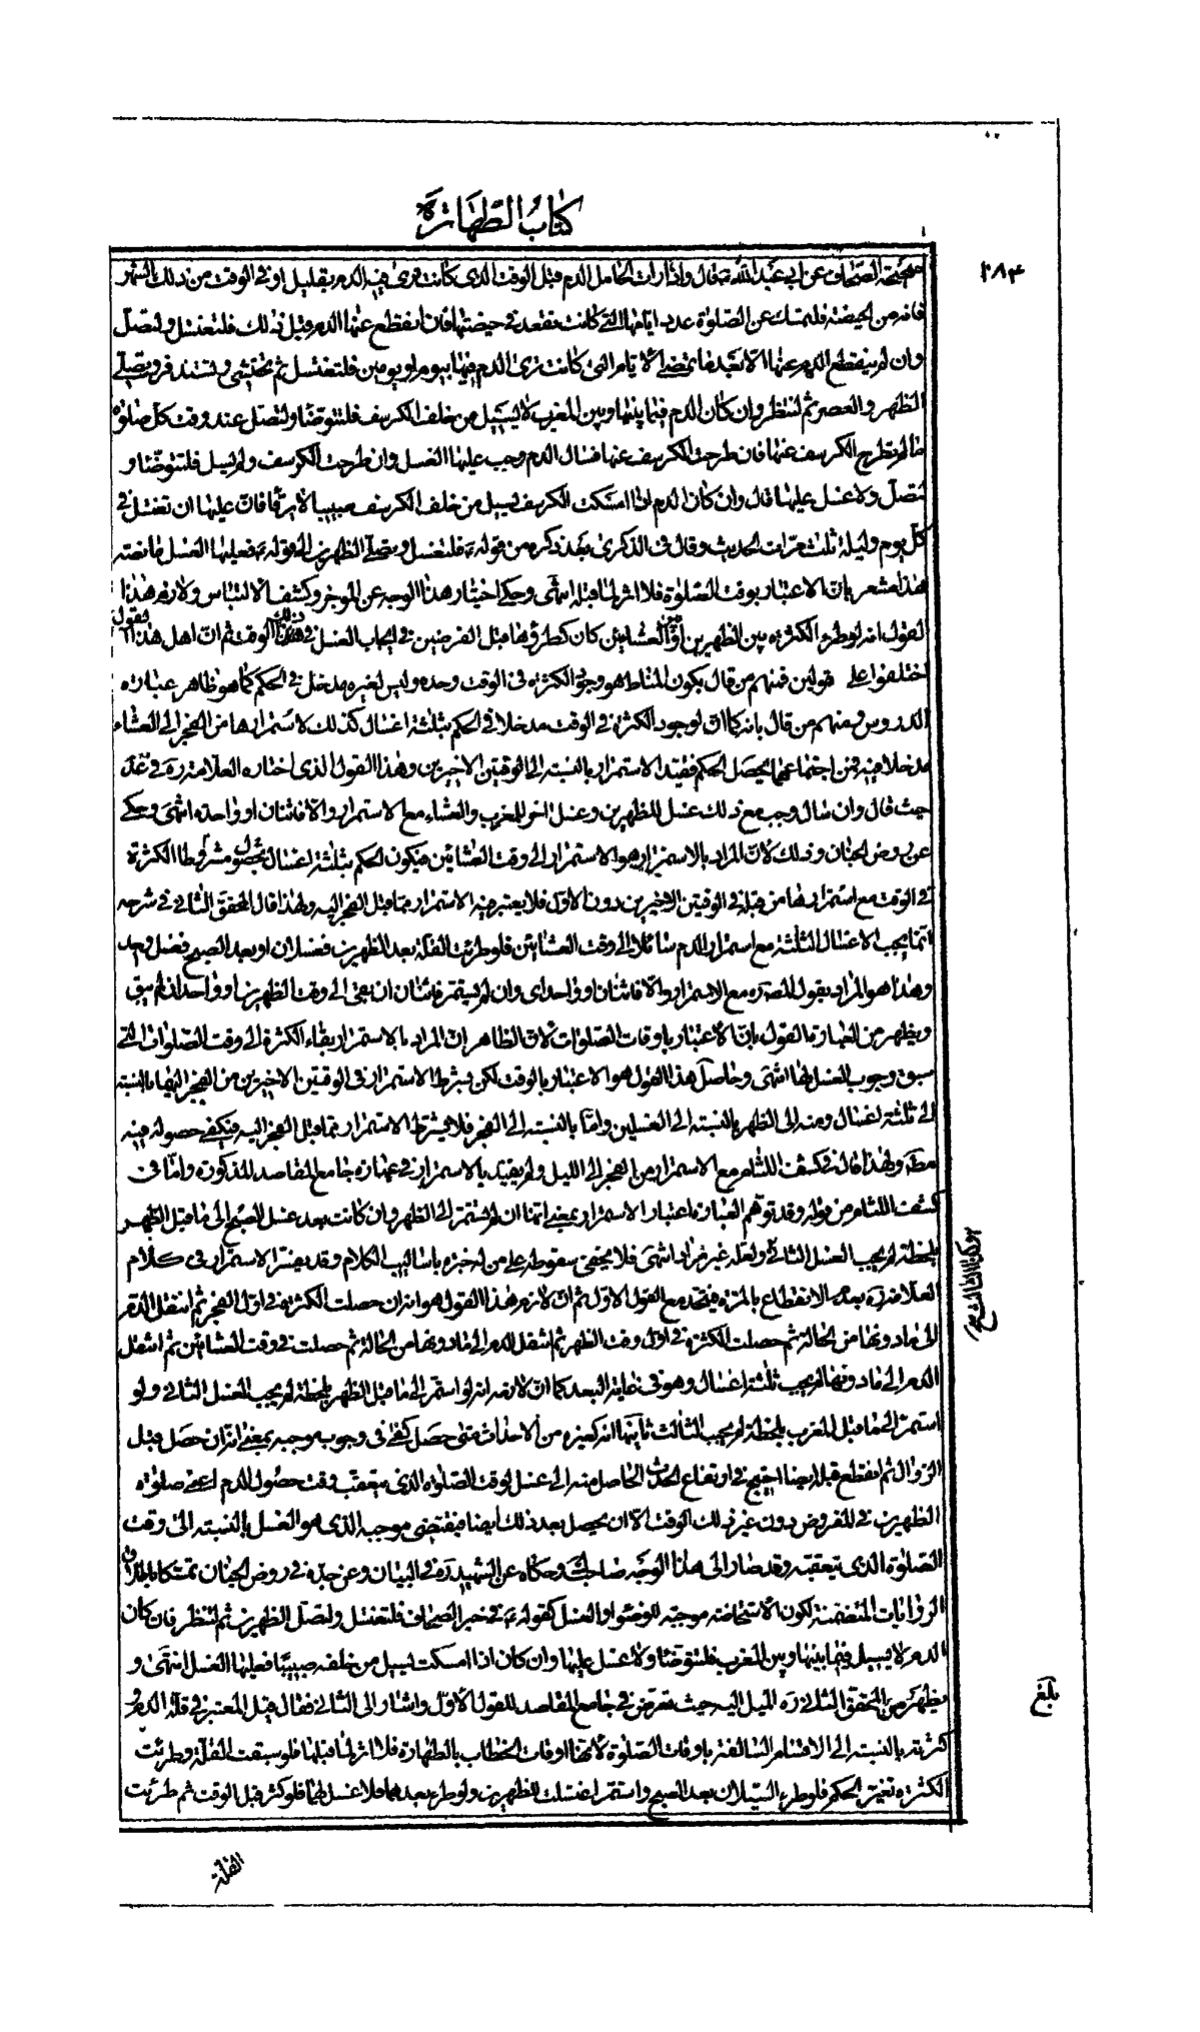 كتاب الطهارة
٢٨۴
صحيحة الصحاف عن ابي عبد الله ع قال واذا رات الحامل الدم قبل الوقت الذي كانت ترى فيه الدم بقليل او في الوقت من ذلك الشهر
فانه من الحيضة فلتمسك عن الصلوة عدد ايامها التي كانت تقعد في حيضتها فان انقطع عنها الدم قبل ذلك فلتغتسل ولتصل
وان لم ينقطع الدم عنها الا بعد ما تمضى الايام التي كانت ترى الدم فيها بيوم او يومين فلتغتسل ثم تحتشي وتستذفر وتصلي
الظهر والعصر ثم لتنظر وان كان الدم فيما بينها وبين المغرب لا يسيل من خلف الكرسف فلتتوضأ ولتصل عند وقت كل صلوة
ما لم تطرح الكرسف عنها فان طرحت الكرسف عنها فسال الدم وجب عليها الغسل وان طرحت الكرسف ولم يسل فلتتوضأ و
لتصل ولا غسل عليها قال وان كان الدم اذا امسكت الكرسف يسيل من خلف الكرسف صبيبا لا يرقأ فان عليها ان تغتسل في
كل يوم وليلة ثلث مرات الحديث وقال في الذكرى بعد ذكره من قوله ع فلتغتسل وتصلي الظهرين الى قوله ع فعليها الغسل ما نصه
هذا مشعر بان الاعتبار بوقت الصلوة فلا اثر لما قبله انتهى وحكي اختيار هذا الوجه عن الموجز وكشف الالتباس ولازم هذا
القول انه لو طرء الكثرة بين الظهرين او العشائين كان كطروها قبل الفرضين في ايجاب الغسل في ذلك الوقت ثم ان اهل هذا القول
اختلفوا على قولين فمنهم من قال بكون المناط هو وجود الكثرة في الوقت وحده وليس لغيره مدخل في الحكم كما هو ظاهر عبارة
الدروس ومنهم من قال بانه كما ان لوجود الكثرة في الوقت مدخلا في الحكم بثلثة اغسال كذلك لاستمرارها من الفجر الى العشاء
مدخلا فيه فمن اجتماعهما يحصل الحكم فقيد الاستمرار بالنسبة الى الوقتين الاخيرين وهذا القول الذي اختاره العلامة ره في عد
حيث قال وان سال وجب مع ذلك غسل للظهرين وغسل اخر للمغرب والعشاء مع الاستمرار والا فاثنان او واحدة انتهى وحكي
عن روض الجنان وذلك لان المراد بالاستمرار هو الاستمرار الى وقت العشائين فيكون الحكم بثلثة اغسال مشروطا الكثرة
في الوقت مع استمرارها من قبله في الوقتين الاخيرين دون الاول فلا يعتبر فيه الاستمرار مما قبل الفجر اليه ولهذا قال المحقق الثاني في شرحه
انما يجب الاغسال الثلثة مع استمرار الدم سائلا الى وقت العشائين فلو طرئت القلة بعد الظهرين فغسلان او بعد الصبح فغسل واحد
وهذا هو المراد بقول المصنف ره مع الاستمرار والا فاثنان او واحد اي وان لم يستمر فاثنان ان بقي الى وقت الظهرين او واحد ان لم يبق
ويظهر من العبارة القول بان الاعتبار باوقات الصلوات لان الظاهر ان المراد بالاستمرار بقاء الكثرة الى وقت الصلوات التي
سبق وجوب الغسل لها انتهى وحاصل هذا القول هو الاعتبار بالوقت لكن بشرط الاستمرار في الوقتين الاخيرين من الفجر اليها بالنسبة
الى ثلثة اغسال ومنه الى الظهر بالنسبة الى الغسلين واما بالنسبة الى الفجر فلا يشترط الاستمرار مما قبل الفجر اليه فيكفي حصوله فيه
مطلقا ولهذا قال في كشف اللثام مع الاستمرار من الفجر الى الليل ولم يقيد بالاستمرار في عبارة جامع المقاصد المذكورة واما في
كشف اللثام من قوله وقد توهم العبارة اعتبار الاستمرار بمعنى انها ان لم يستمر الى الظهر وان كانت بعد غسل الصبح الى ما قبل الظهر
بلحظة لم يجب الغسل الثاني ولعله غير مراد انتهى فلا يخفى سقوطه على من له خبرة باساليب الكلام وقد يفسر الاستمرار في كلام
العلامة ره بعدم الانقطاع بالمرة فيتحد مع القول الاول ثم ان لازم هذا القول هو انه ان حصلت الكثرة في اول الفجر ثم انتقل الدم
الى ما دونها من الحالة ثم حصلت الكثرة في اول وقت الظهر ثم انتقل الدم الى ما دونها من الحالة ثم حصلت في وقت العشائين ثم انتقل
الدم الى ما دونها لم يجب ثلثة اغسال وهو في غاية البعد كما ان لازمه انه لو استمر الى ما قبل الظهر بلحظة لم يجب الغسل الثاني ولو
استمر الى ما قبل المغرب بلحظة لم يجب الثالث ثانيها انه كغيره من الاحداث متى حصل كفى في وجوب موجبه بمعنى انه ان حصل قبل
الزوال ثم انقطع قبله ايضا احتيج في ارتفاع الحدث الحاصل منه الى غسل لوقت الصلوة الذي يتعقب وقت حصول الدم اعني صلوة
الظهرين في المفروض دون غير ذلك الوقت الا ان يحصل بعد ذلك ايضا فيقتضي موجبه الذي هو الغسل بالنسبة الى وقت
الصلوة الذي يتعقبه وقد صار الى هذا الوجه صاحب وحكاه عن الشهيد ره في البيان وعن جده في روض الجنان تمسكا باطلاق
الروايات المتضمنة لكون الاستحاضة موجبة للوضوء او الغسل كقوله ع في خبر الصحاف فلتغتسل ولتصل الظهرين ثم لتنظر فان كان
الدم لا يسيل فيما بينها وبين المغرب فلتتوضأ ولا غسل عليها وان كان اذا امسكت يسيل من خلفه صبيبا فعليها الغسل انتهى و
يظهر من المحقق الثاني ره الميل اليه حيث تعرض في جامع المقاصد للقول الاول واشار الى الثاني فقال قيل المعتبر في قلة الدم و
كثرته بالنسبة الى الاقسام السالفة باوقات الصلوة لانها اوقات الخطاب بالطهارة فلا اثر لما قبلها فلو سبقت القلة وطرئت
الكثرة تغير الحكم فلو طرء السيلان بعد الصبح واستمر اغتسلت للظهرين ولو طرء بعدهما فلا غسل لهما فلو كثر قبل الوقت ثم طرئت
القلة
بلغ